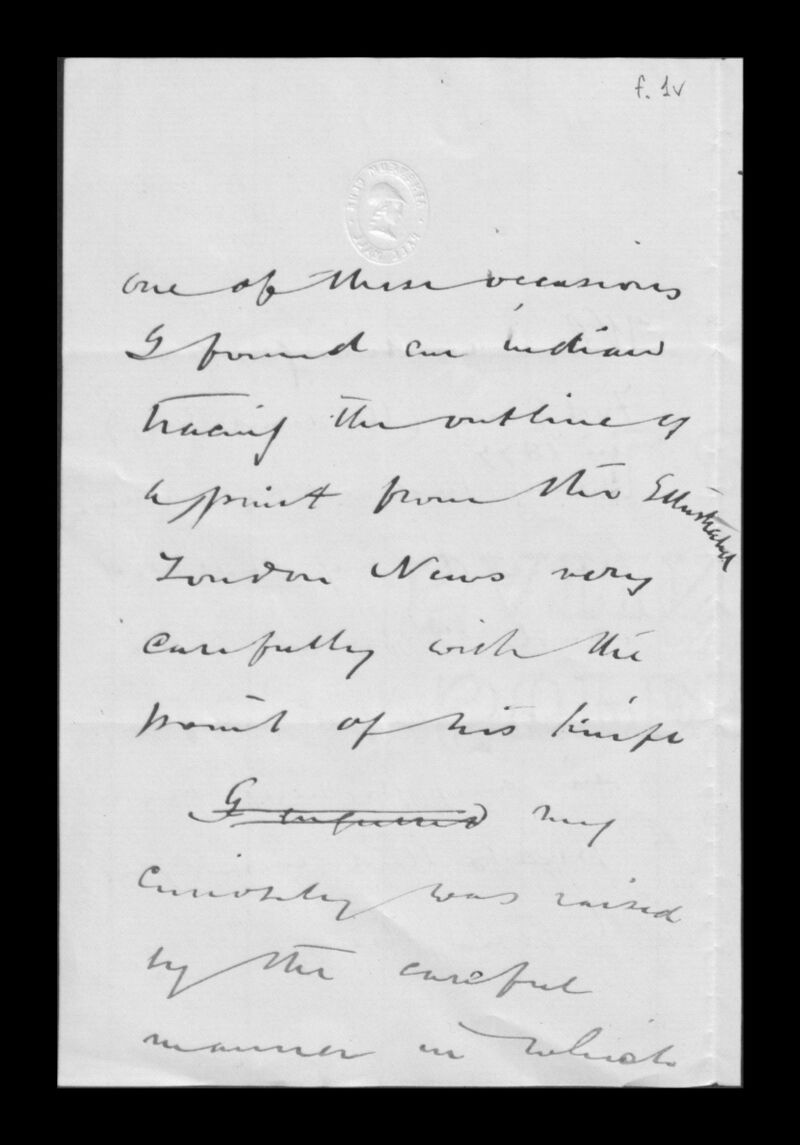 f. 1v
one of these occasions
I found an indian
tracing the outline of
a print from the Illustrated
London News very
carefully with the
point of his knife
I enquired my
curiosity was raised
by the careful
manner in which